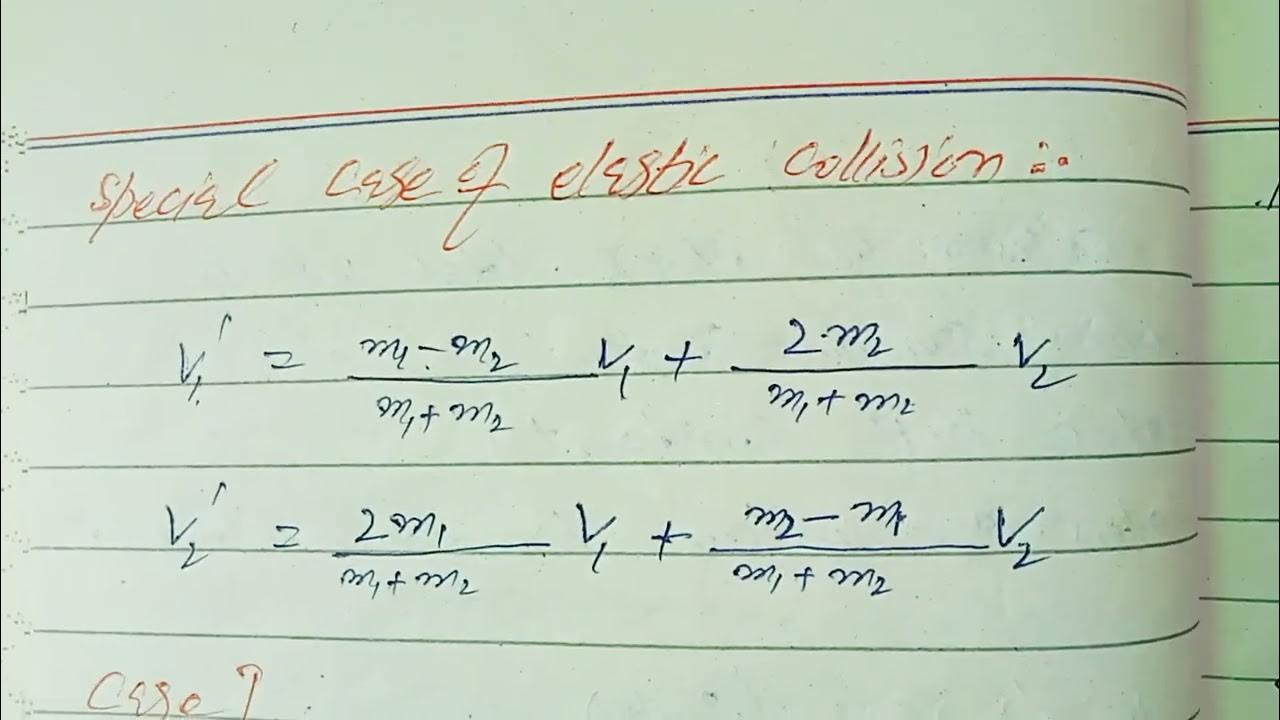 Special case of elastic collission :-
V₁' = m₁-m₂/m₁+m₂ V₁ + 2m₂/m₁+m₂ V₂
V₂' = 2m₁/m₁+m₂ V₁ + m₂-m₁/m₁+m₂ V₂
Case 1